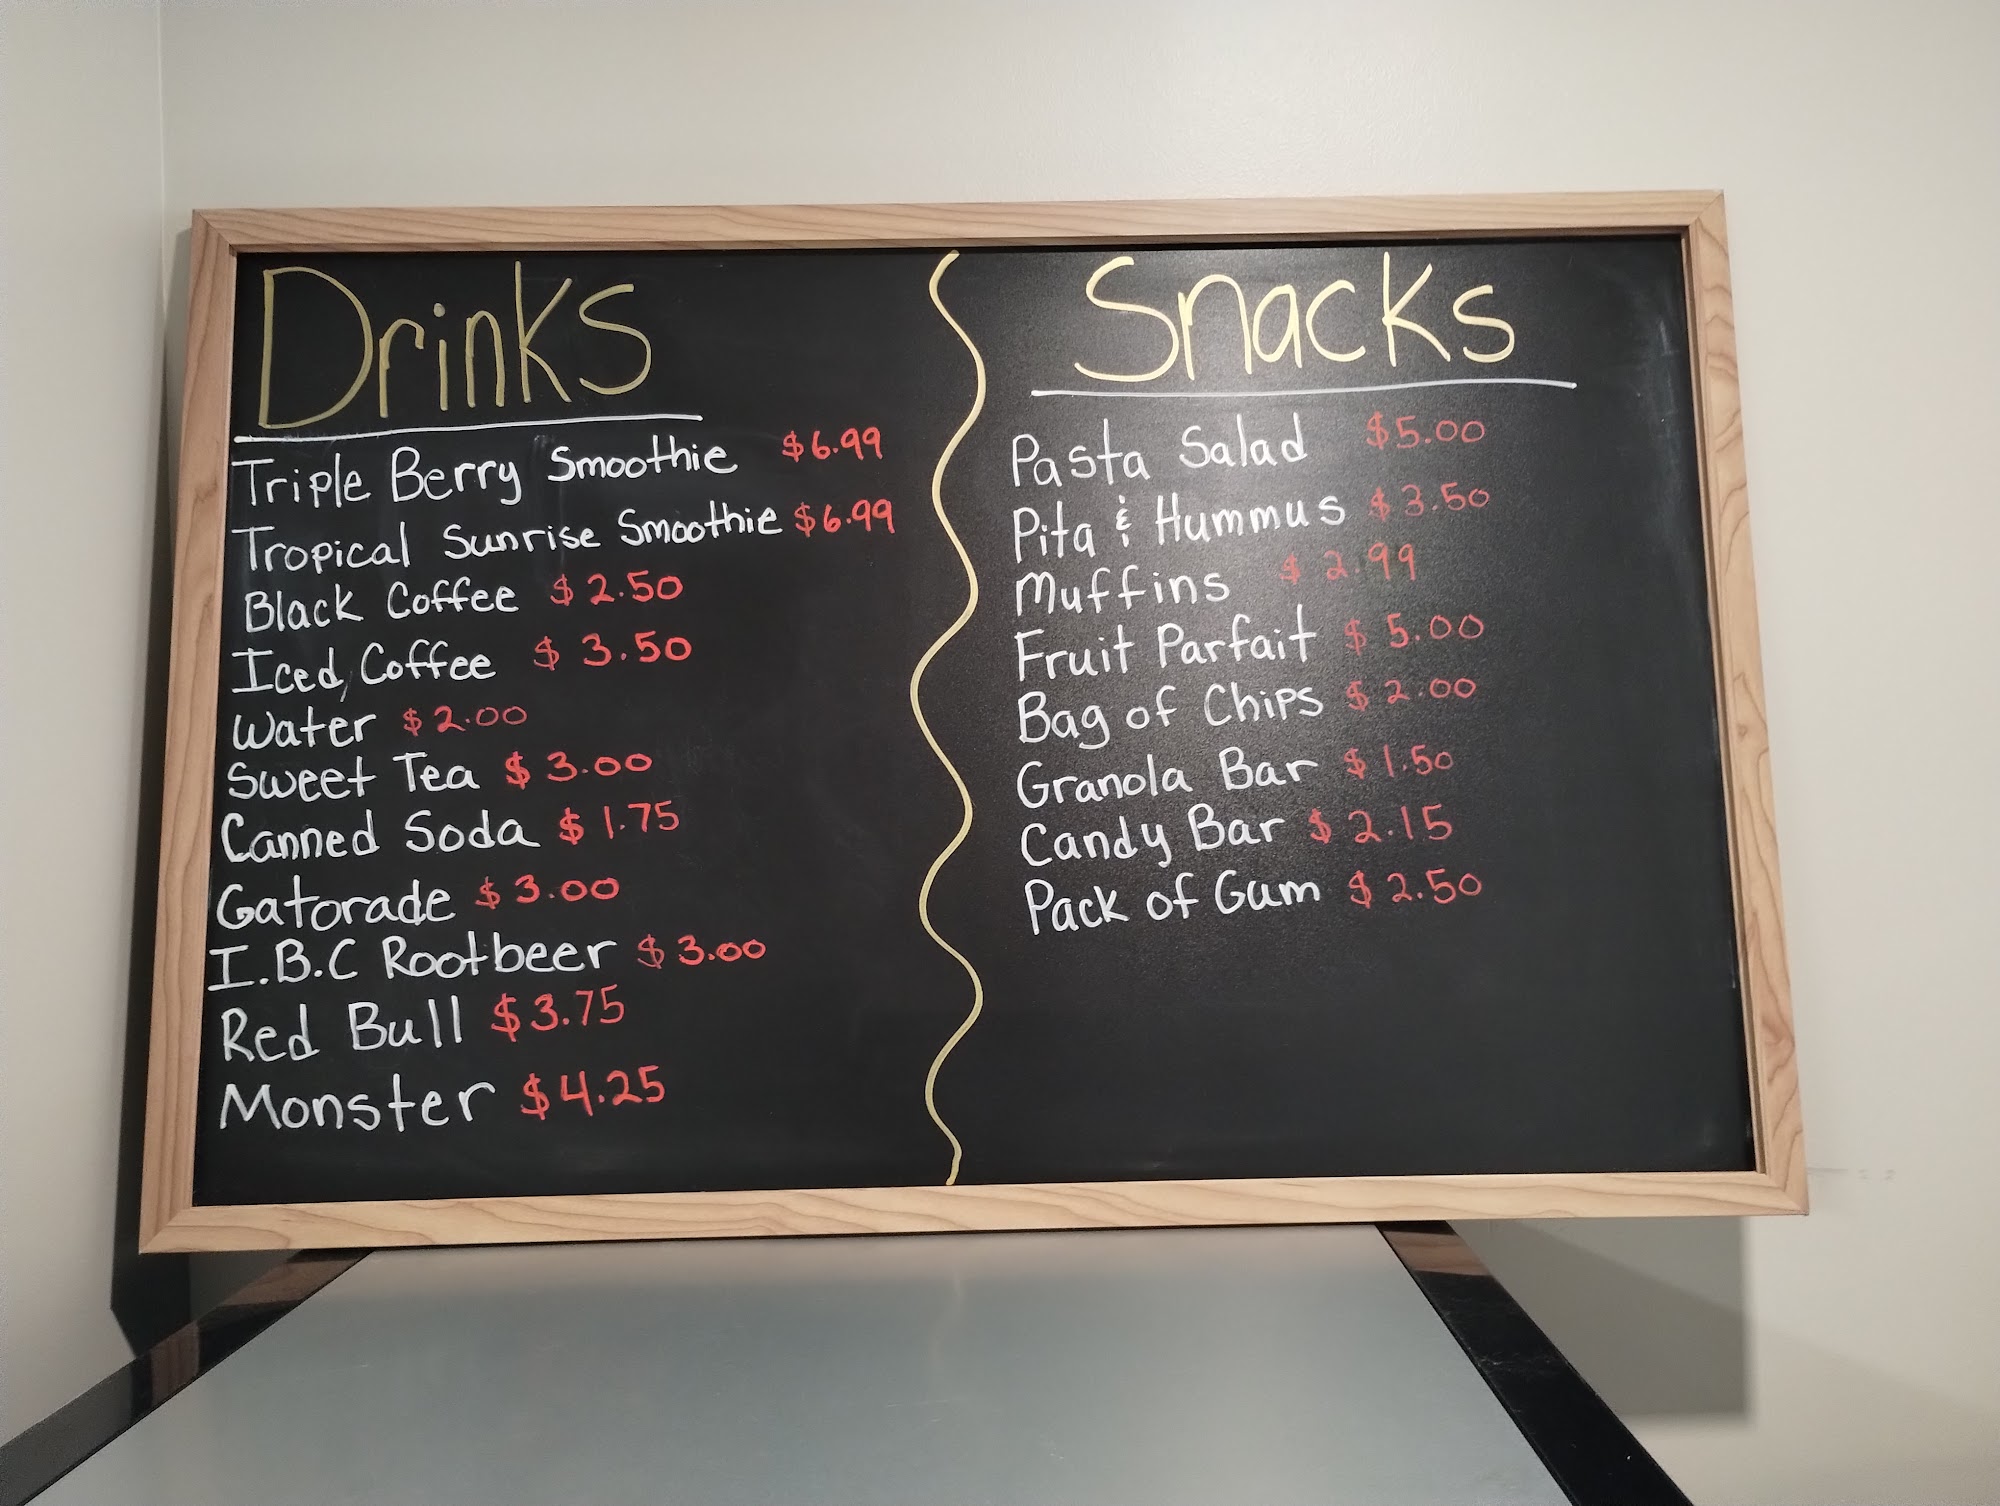 Drinks
Triple Berry Smoothie $6.99
Tropical Sunrise Smoothie $6.99
Black Coffee $2.50
Iced Coffee $3.50
Water $2.00
Sweet Tea $3.00
Canned Soda $1.75
Gatorade $3.00
I.B.C Rootbeer $3.00
Red Bull $3.75
Monster $4.25
Snacks
Pasta Salad $5.00
Pita & Hummus $3.50
Muffins $2.99
Fruit Parfait $5.00
Bag of Chips $2.00
Granola Bar $1.50
Candy Bar $2.15
Pack of Gum $2.50